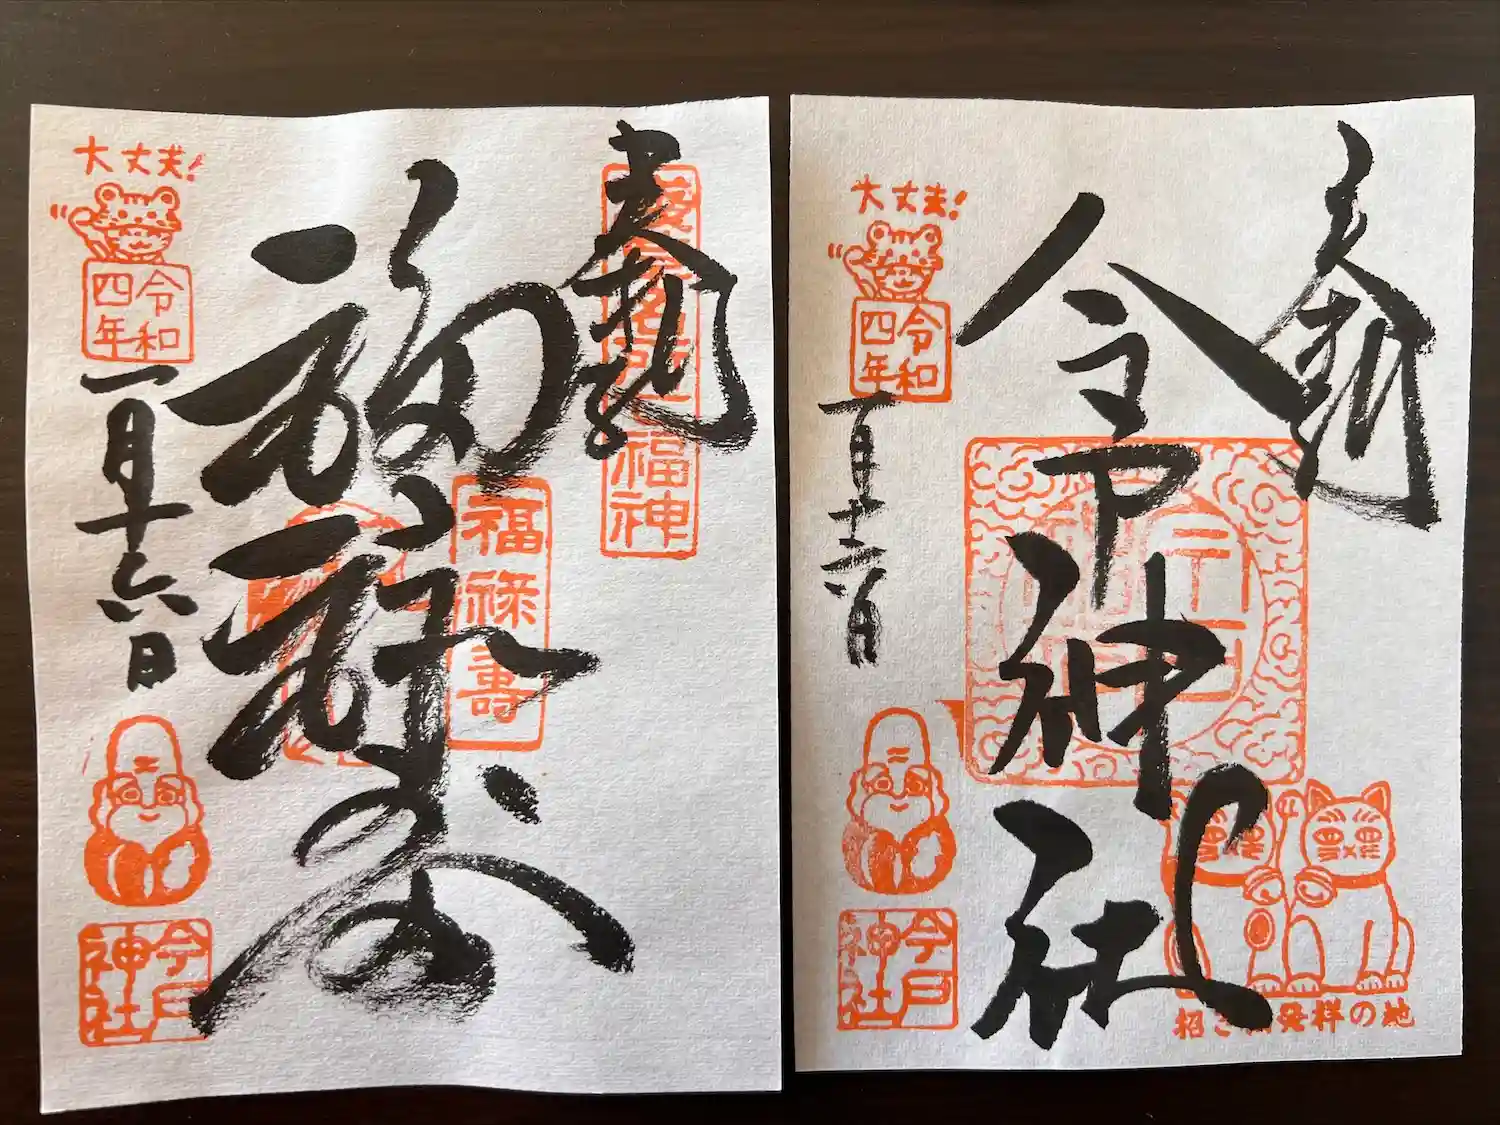 奉拝
福神
福禄寿
福禄寿
大丈夫!
令和
四年
一月十六日
今戸
神社
奉拝
今戸神社
大丈夫!
令和
四年
一月十六日
今戸
神社
発祥の地